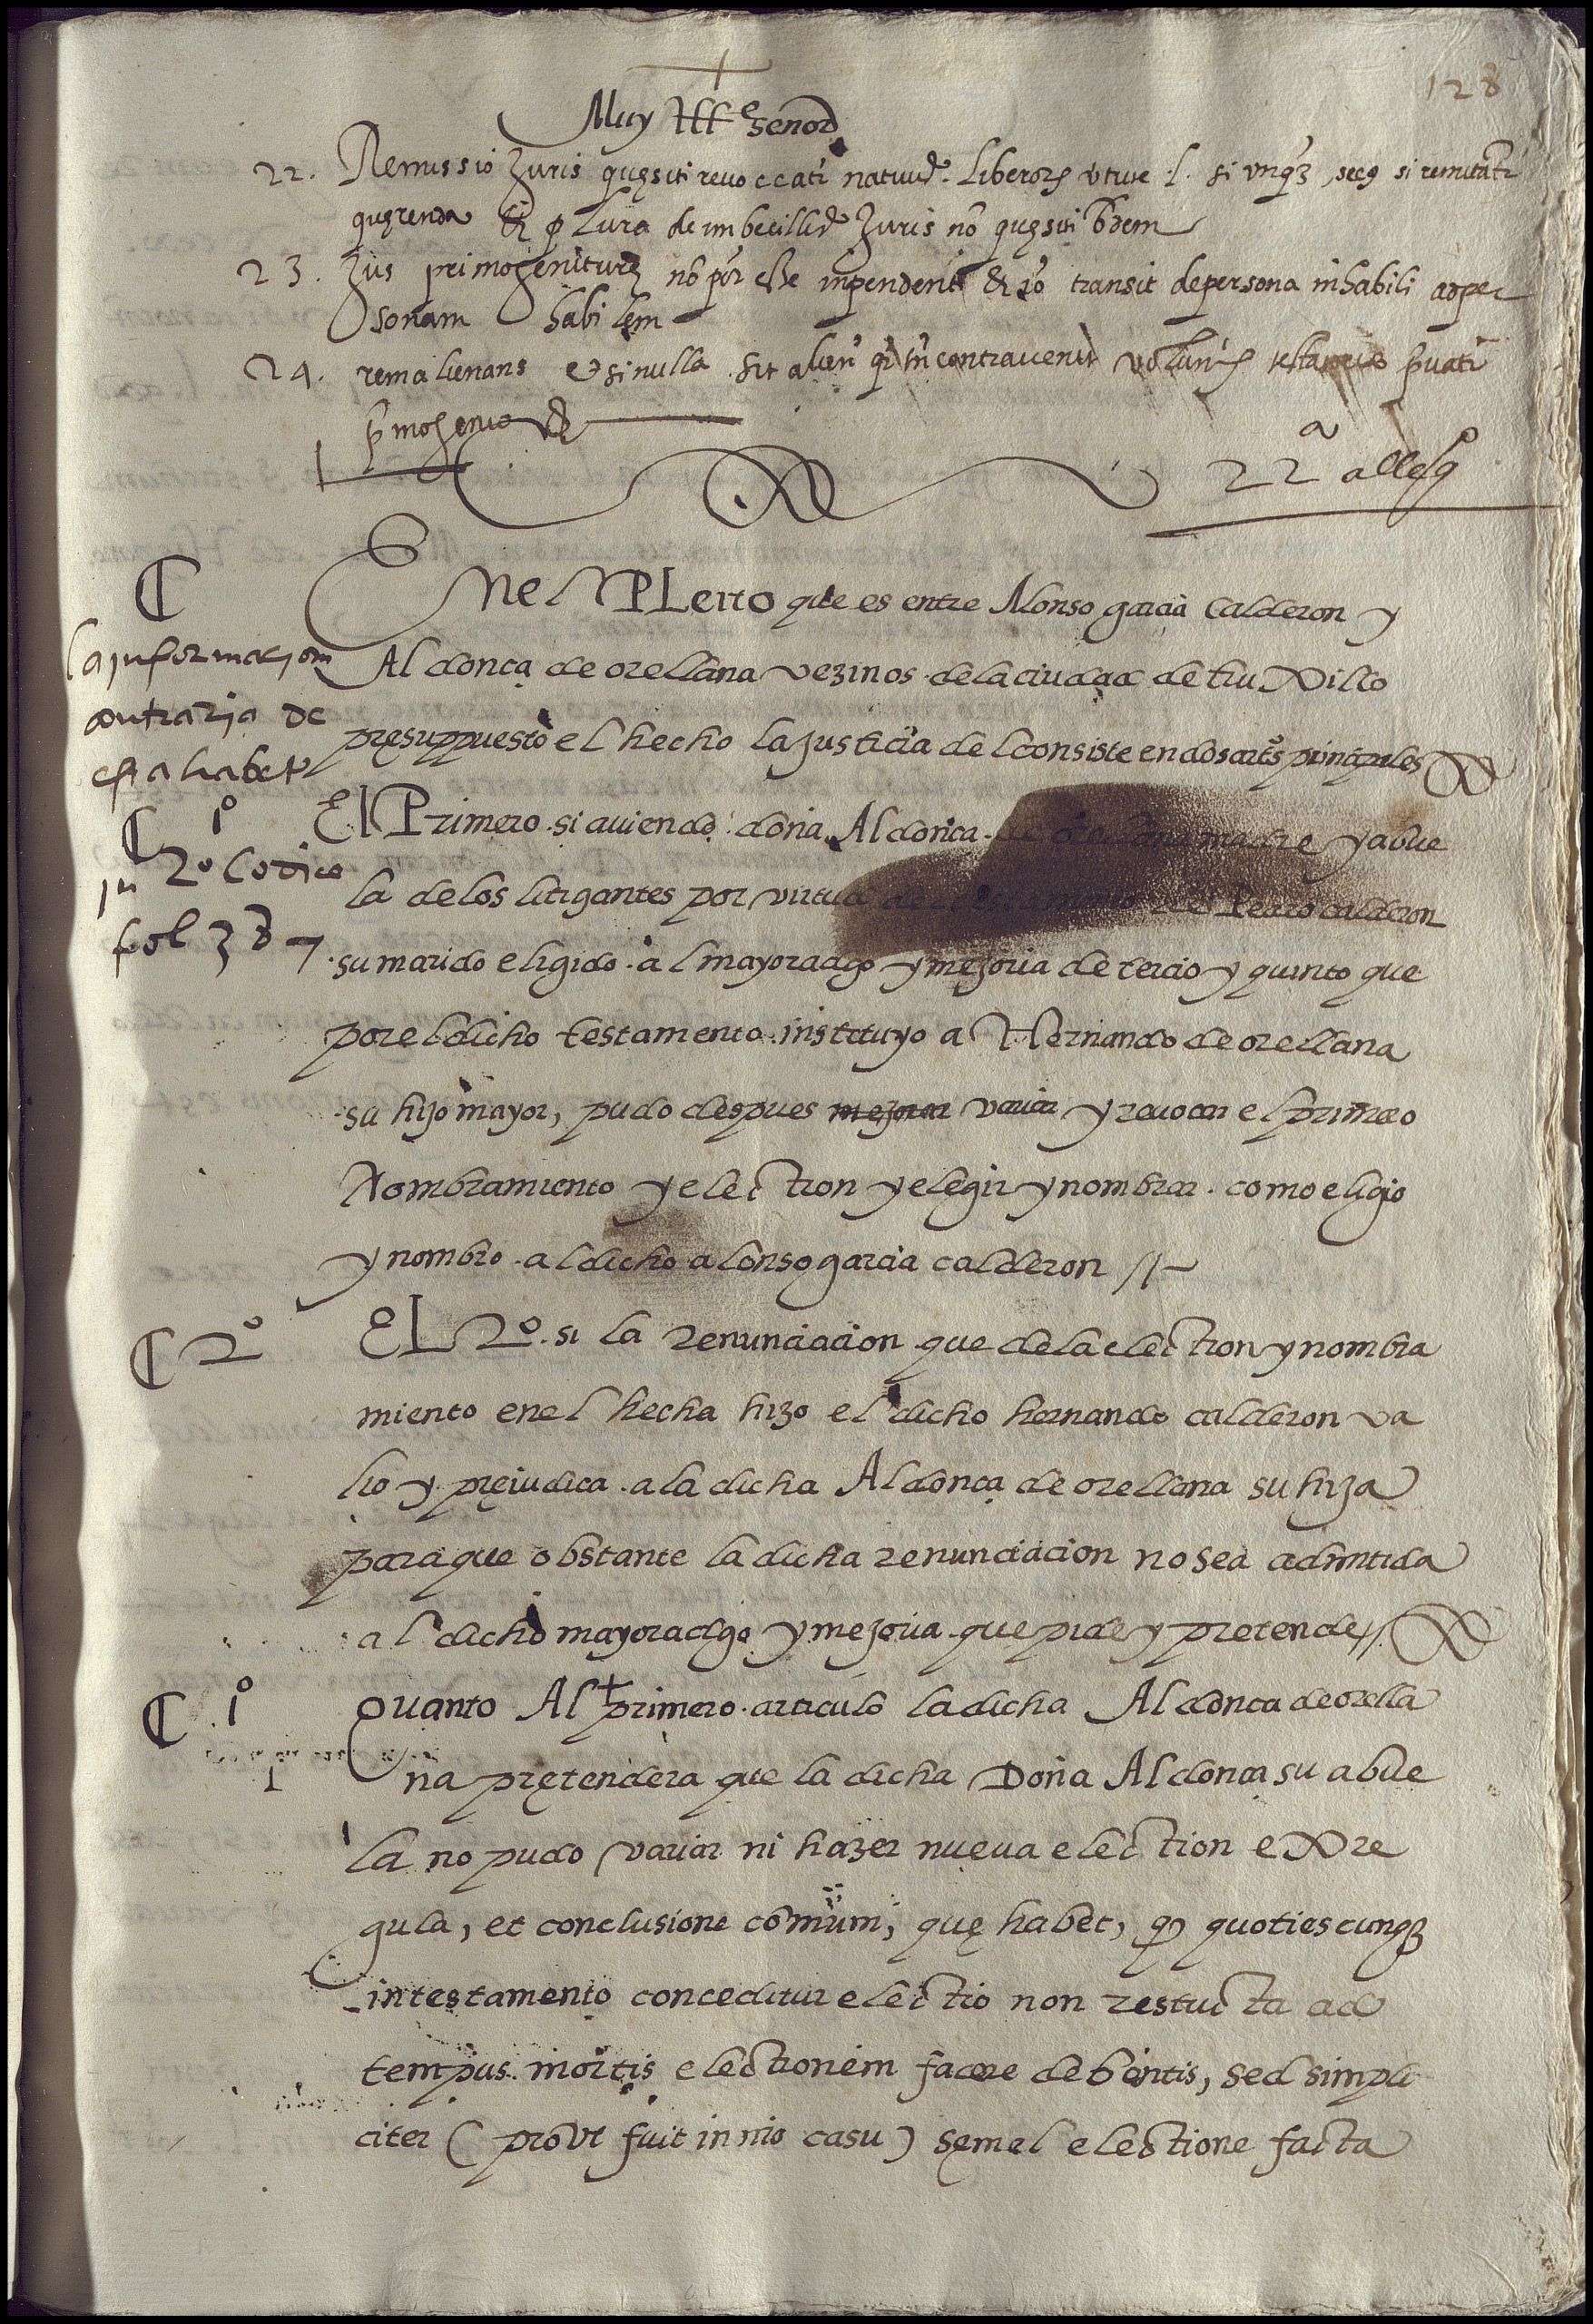 128
Muy Ille senor
22. Remissio Juris quęsiti revoccatr̃ nativit. liberor. virtute .l. si vnqȝ, secꝰ si remittatr̃
quęrenda & plura de imbecillit. Juris nõ quęsiti ibidem
23. Jus primogeniturę nõ põt esse inpendenti & iõ transit de persona inhabili ad per
sonam habilem
24. rem alienans etsi nulla sit alien
primogenio
22ª alleg
En el PLeito que es entre Alonso garcia calderon y
Aldonça de orellana vezinos de la ciudad de truxillo
pręsuppuesto el hecho la justicia del consiste en dos artos principales
la jnformaçion
contraria de
esta habetur
jn 2º Codice
fol 38
1º El Primero si auiendo doña Aldonça de orellana madre y abue
la de los litigantes por virtud del testamento de Pedro calderon
su marido eligido al mayoradgo y mejoria de tercio y quinto que
por el dicho testamento instituyo a Hernando de orellana
su hijo mayor, pudo despues mejorar variar y reuocar el primero
Nombramiento y election y elegir y nombrar como eligio
y nombro al dicho alonso garcia calderon //
2º EL 2º si la renunciacion que de la election y nombra
miento en el hecha hizo el dicho hernando calderon va
lio y pręiudica a la dicha Aldonça de orellana su hija
para que obstante la dicha renunciacion no sea admitida
al dicho mayoradgo y mejoria que pide y pretende //
1º Quanto Al primero articulo la dicha Aldonça de orella
1
na prętendera que la dicha Doña Aldonça su abue
la no pudo variar ni hazer nueua election ex re
gula, et conclusione comuni, quę habet, qd quotiescunqȝ
in testamento conceditur electio non restricta ad
tempus mortis electionem facere debentis, sed simpli
citer (prout fuit in nro casu) sęmel electione facta